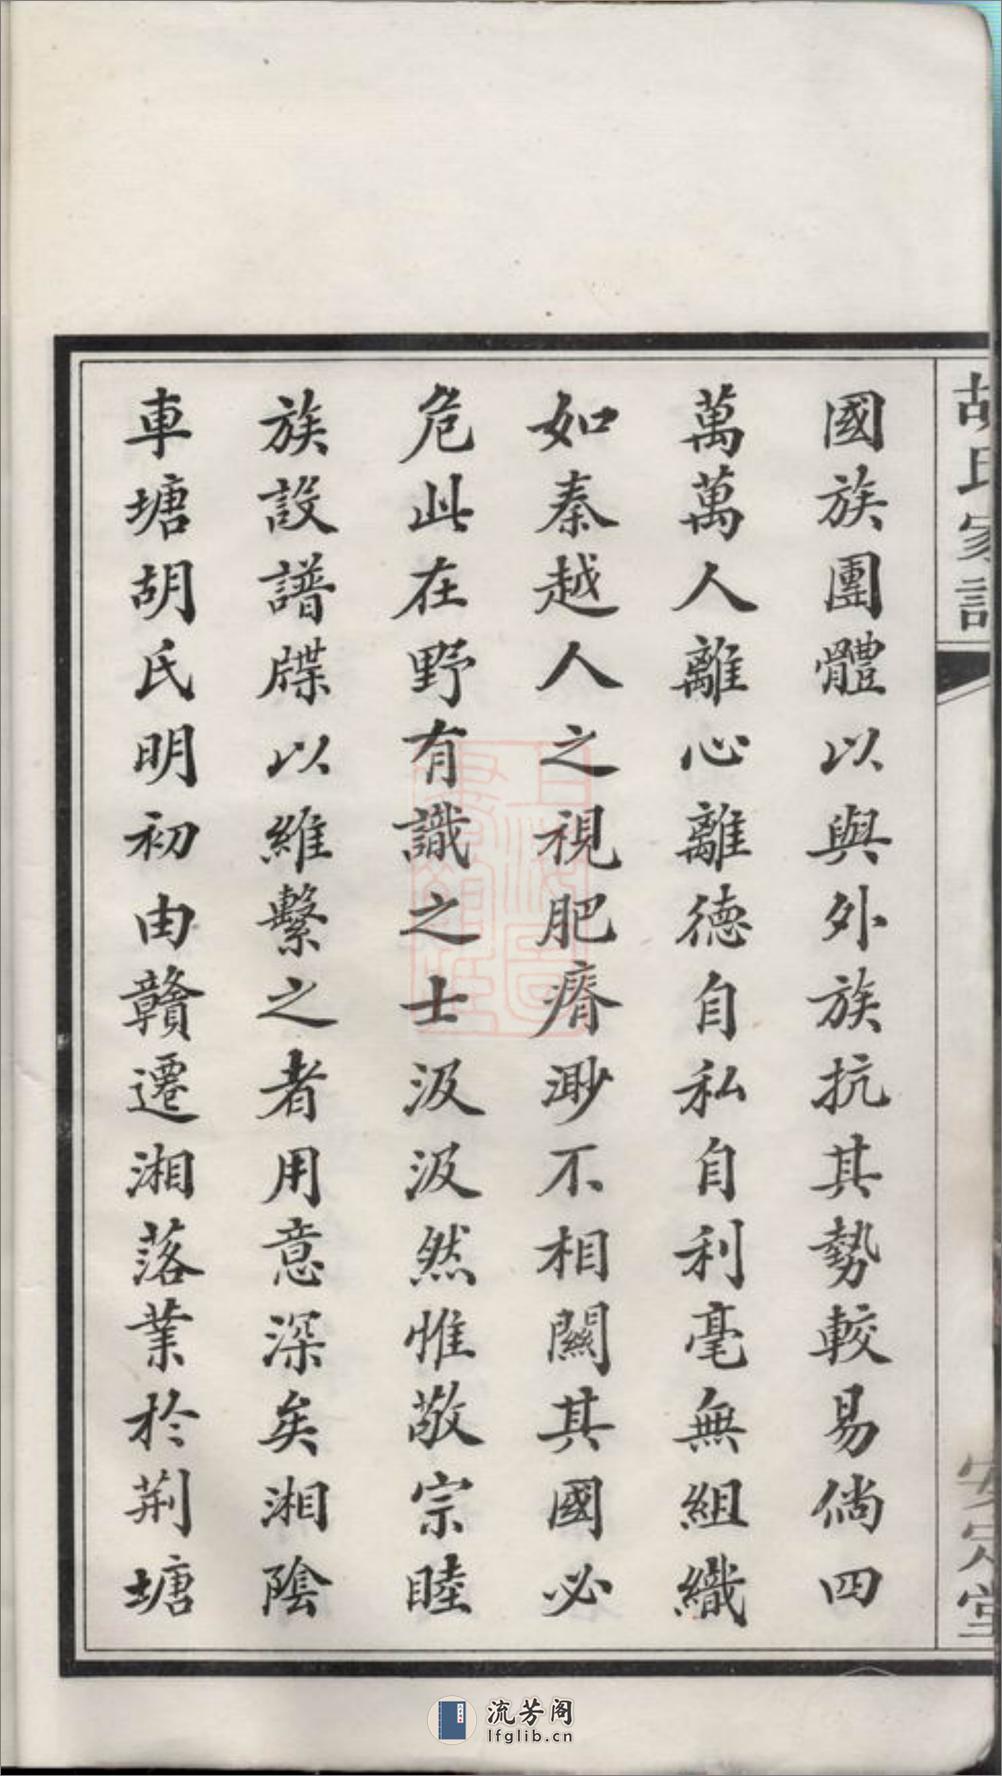 胡氏家譜
安定堂
國族團體以與外族抗其勢較易倘四
萬萬人離心離德自私自利毫無組織
如秦越人之視肥瘠渺不相關其國必
危此在野有識之士汲汲然惟敬宗睦
族設譜牒以維繫之者用意深矣湘陰
車塘胡氏明初由贛遷湘落業於荆塘
流芳阁
lfglib.cn